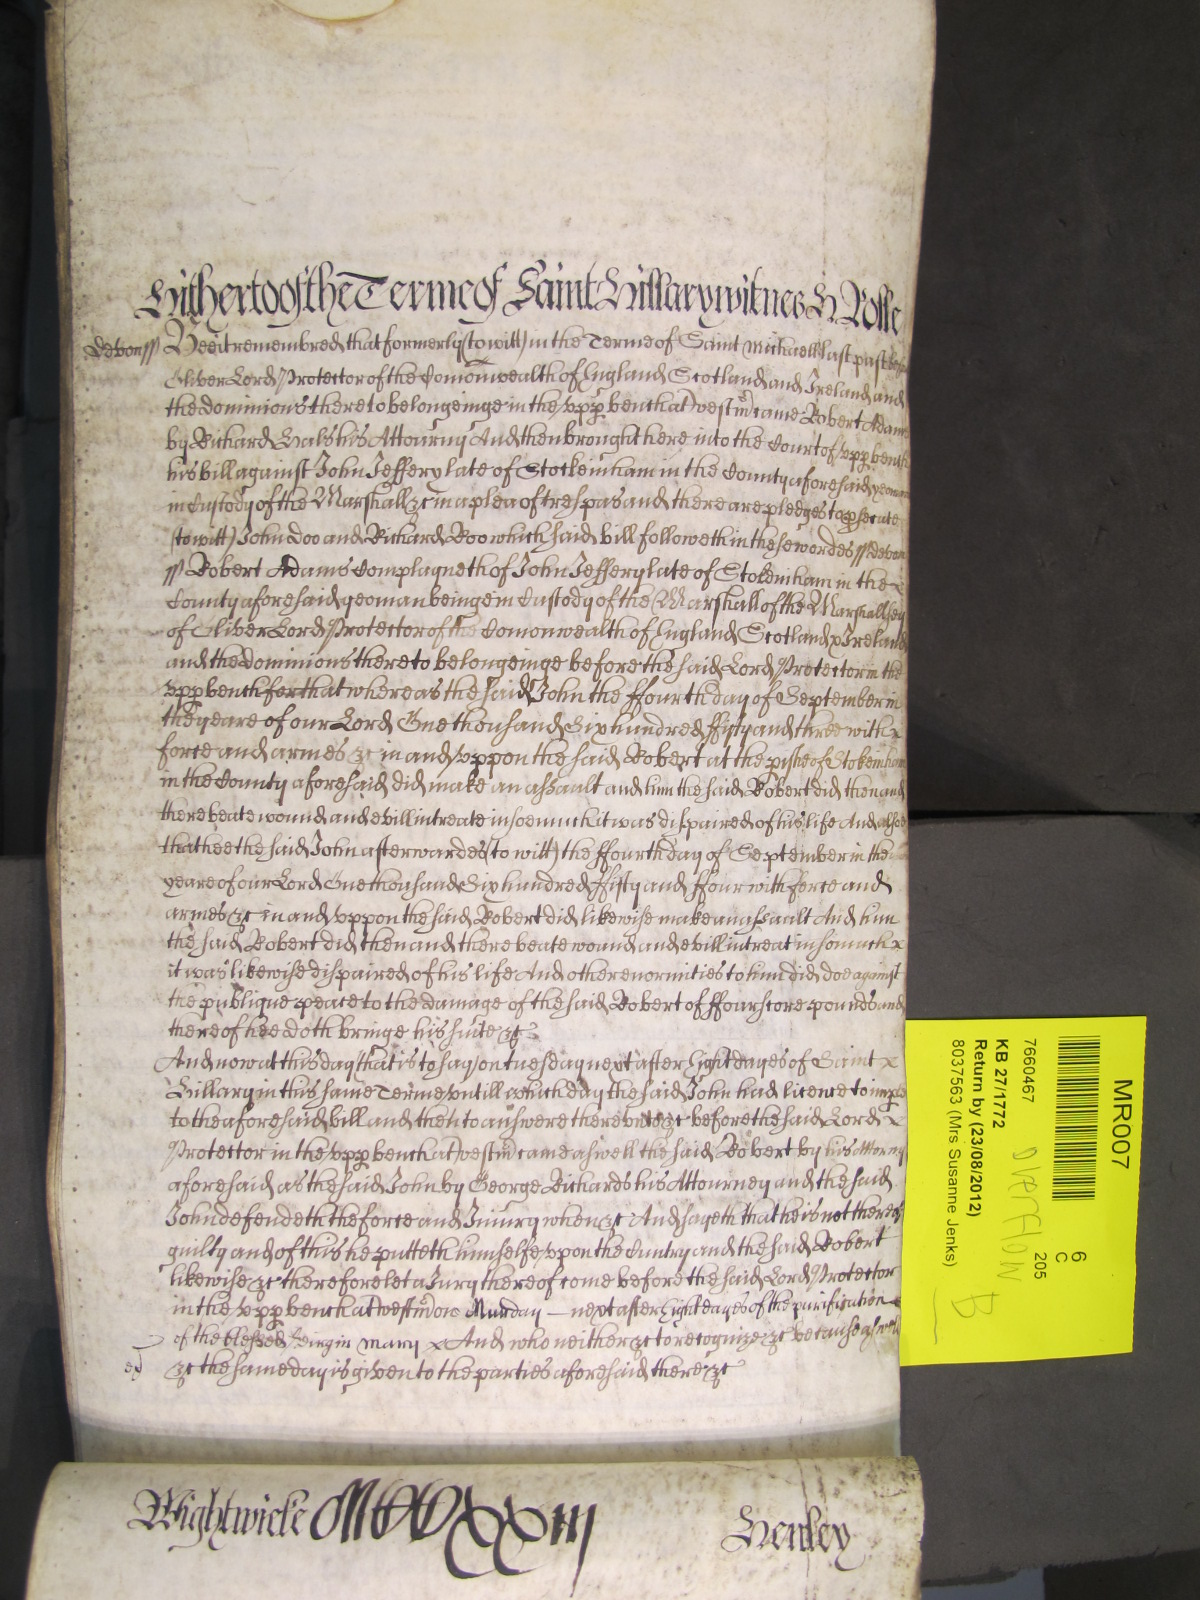 Hitherto of the Terme of Saint Hillary witnes H Rolle
Devon ss Bee it remembred that formerly (to witt) in the Terme of Saint Michaell last past before
Oliver Lord Protector of the Comonwealth of England Scotland and Ireland and
the dominions thereto belongeinge in the upp bench at Westm came Robert Adams
by Richard Hals his Attourny And then brought here into the Court of upp bench
his bill against John Jeffery late of Stokeinham in the County aforesaid yeoman
in Custody of the Marshall &c in a plea of trespas and there are pledges to psecute
(to witt) John Doo and Richard Roo which said bill followeth in these wordes ss Devon
ss Robert Adams Complayneth of John Jeffery late of Stokeinham in the
County aforesaid yeoman beinge in Custody of the Marshall of the Marshallsey
of Oliver Lord Protector of the Comonwealth of England Scotland & Ireland
and the dominions thereto belongeinge before the said Lord Protector in the
upp bench for that whereas the said John the ffourth day of September in
the yeare of our Lord One thousand Six hundred ffifty and three with
force and armes &c in and uppon the said Robert at the pish of Stokeinham
in the County aforesaid did make an assault and him the said Robert did then and
there beate wound and evill intreate insoemuch it was dispaired of his life And alsoe
that hee the said John afterwardes (to witt) the ffourth day of September in the
yeare of our Lord One thousand Six hundred ffifty and ffour with force and
armes &c in and uppon the said Robert did likewise make an assault And him
the said Robert did then and there beate wound and evill intreat insomuch
it was likewise dispaired of his life And other enormities to him did doe against
the publique peace to the damage of the said Robert of ffourscore pounds and
thereof hee doth bringe his suite &c
And now at this day (that is to say) on tuesday next after Eight dayes of Saint
Hillary in this same Terme untill which day the said John had licence to imple
to the aforesaid bill and then to answere thereunto &c before the said Lord
Protector in the upp bench at Westm came aswell the said Robert by his Attorny
aforesaid as the said John by George Richards his Attourney and the said
John defendeth the force and Iniury when &c And sayeth that he is not thereof
guilty and of this he putteth himselfe upon the Cuntry and the said Robert
likewise &c therefore let a Jury thereof come before the said Lord Protector
in the upp bench at Westm on Munday next after Eight dayes of the purification
of the blessed virgin mary And who neither &c to recognize &c because aswell
&c the same day is given to the parties aforesaid there &c
Wightwicke MCCCXXIII Henley
MR007
6
C
205
7660467
KB 27/1772
Return by (23/08/2012)
8037563 (Mrs Susanne Jenks)
overflow
B